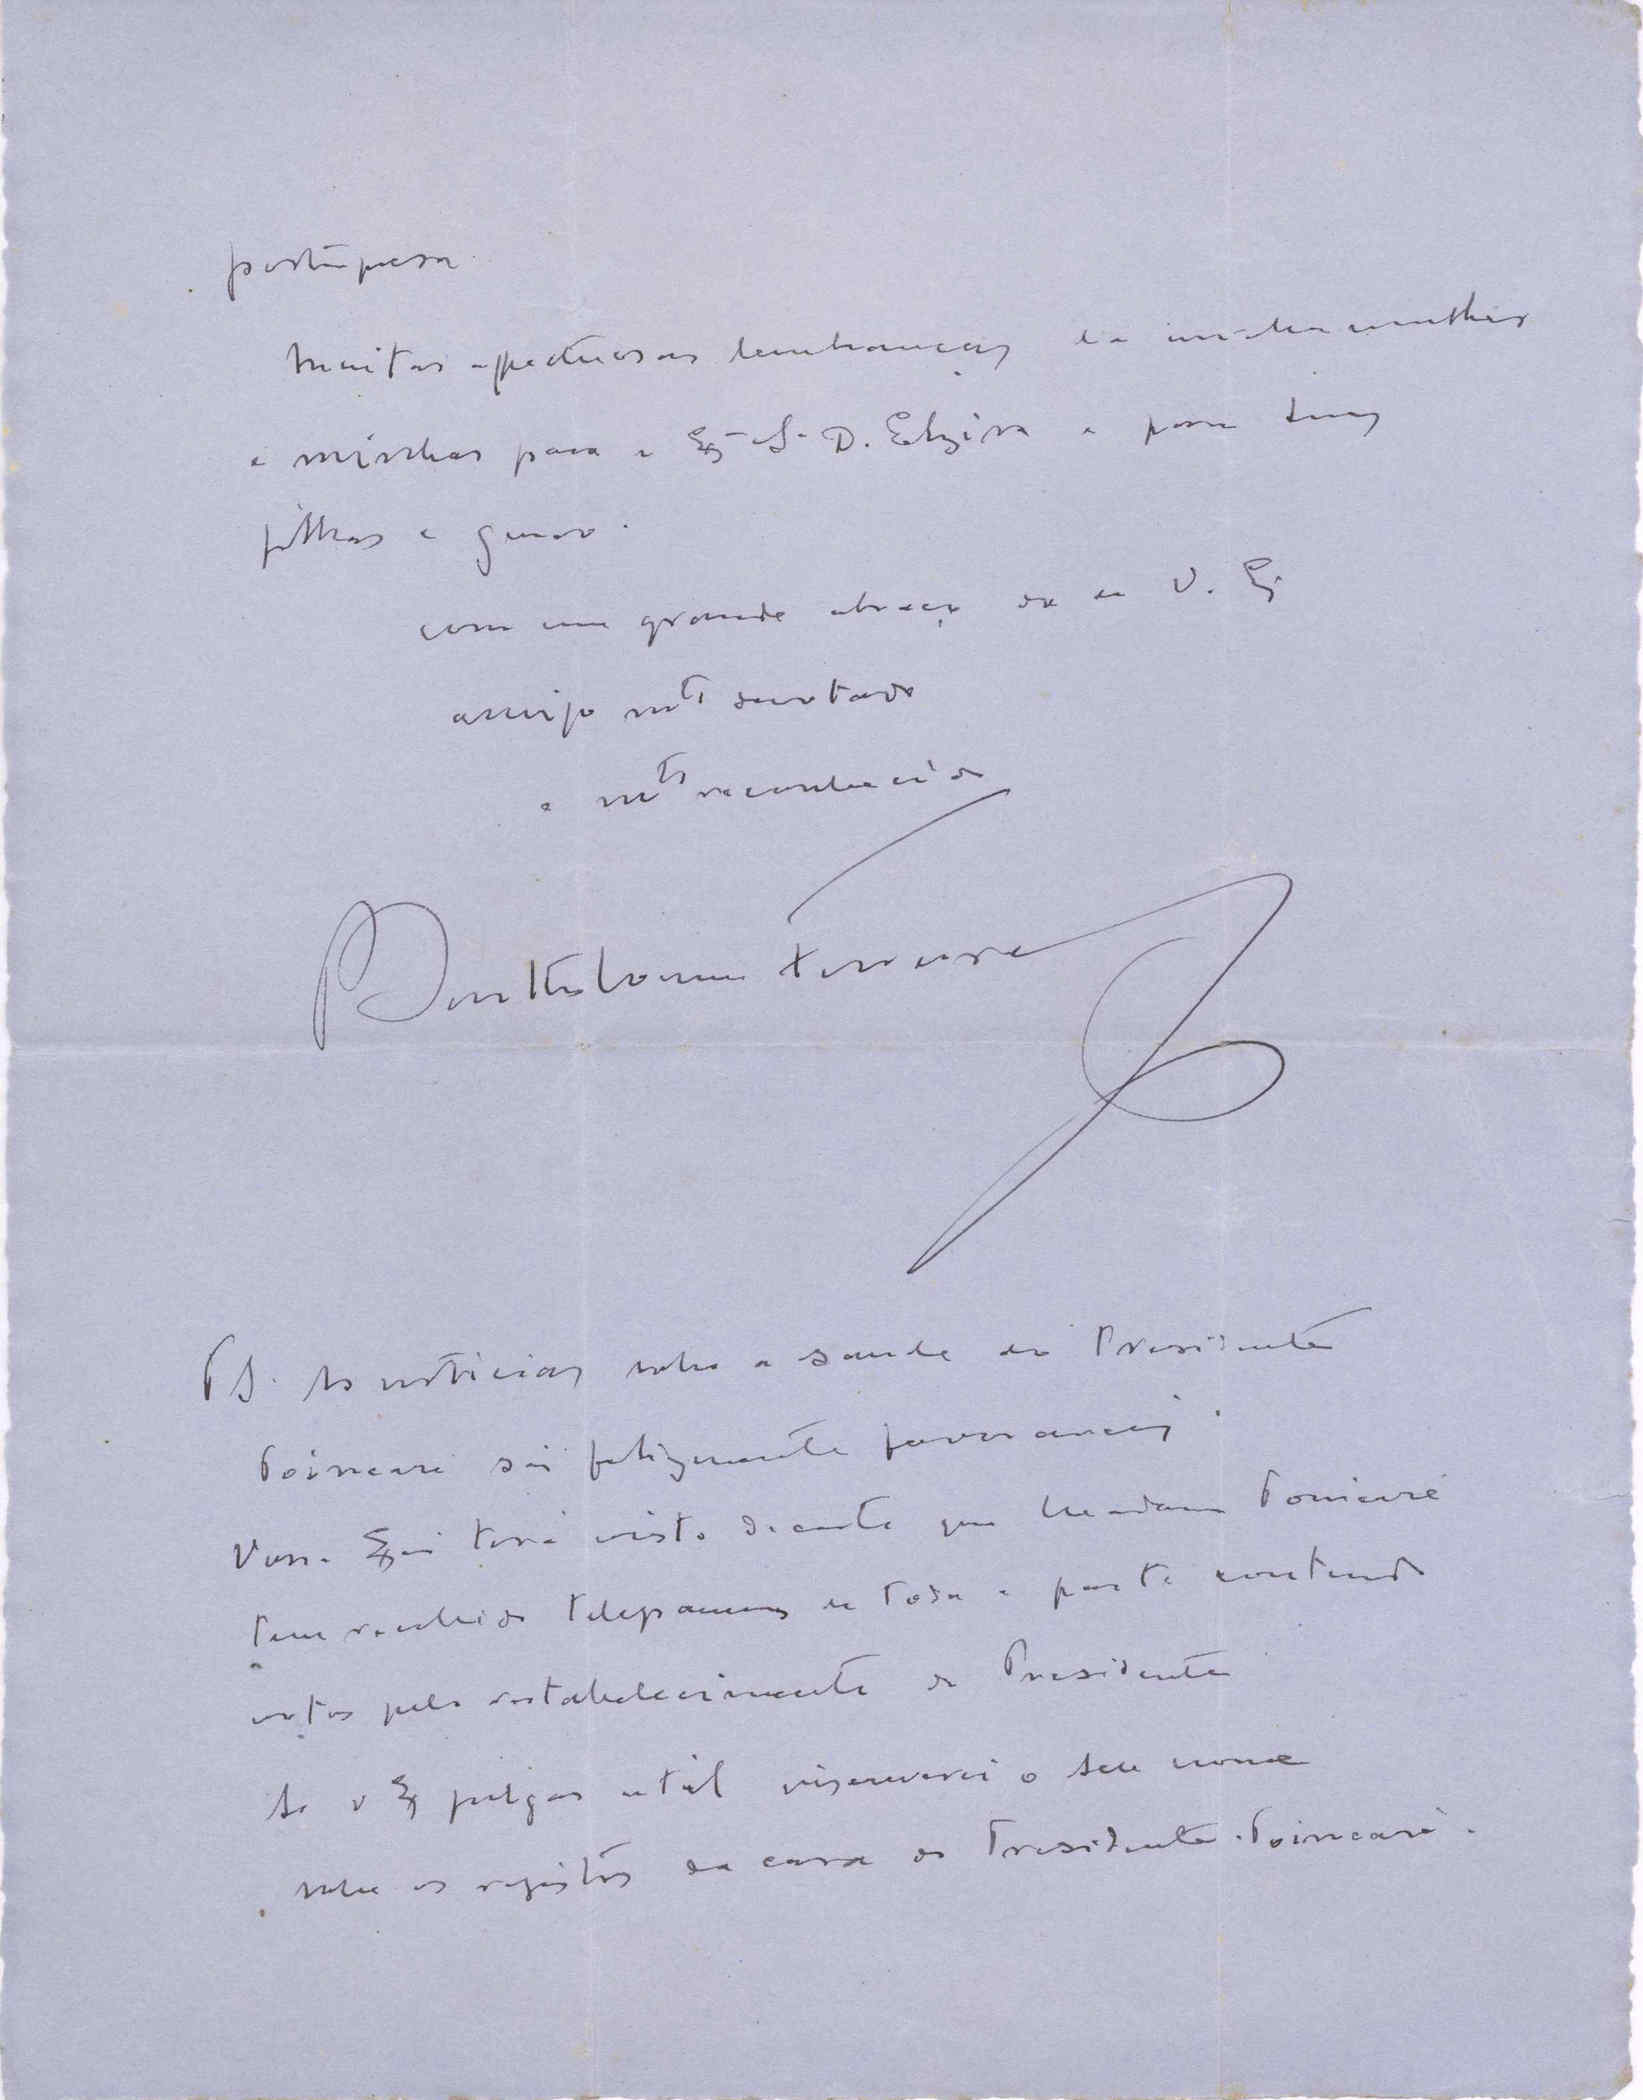 portuguesa
Muitas affectuosas lembranças da minha mulher
e minhas para a Exª Sª D. Elzira e para suas
filhas e genro.
com um grande abraço do de V. Ex
amigo mtº devotado
e mtº reconhecido
Bartholomeu Ferreira
PS. As noticias sobre a saude do Presidente
Poincaré são felizmente favoraveis.
Vossa Exª terá visto decerto que Madame Poincaré
tem recebido telegramas de toda a parte contendo
votos pelo restabelecimento do Presidente
Se V Ex julgar util inscreverei o seu nome
sobre os registos da casa do Presidente Poincaré.